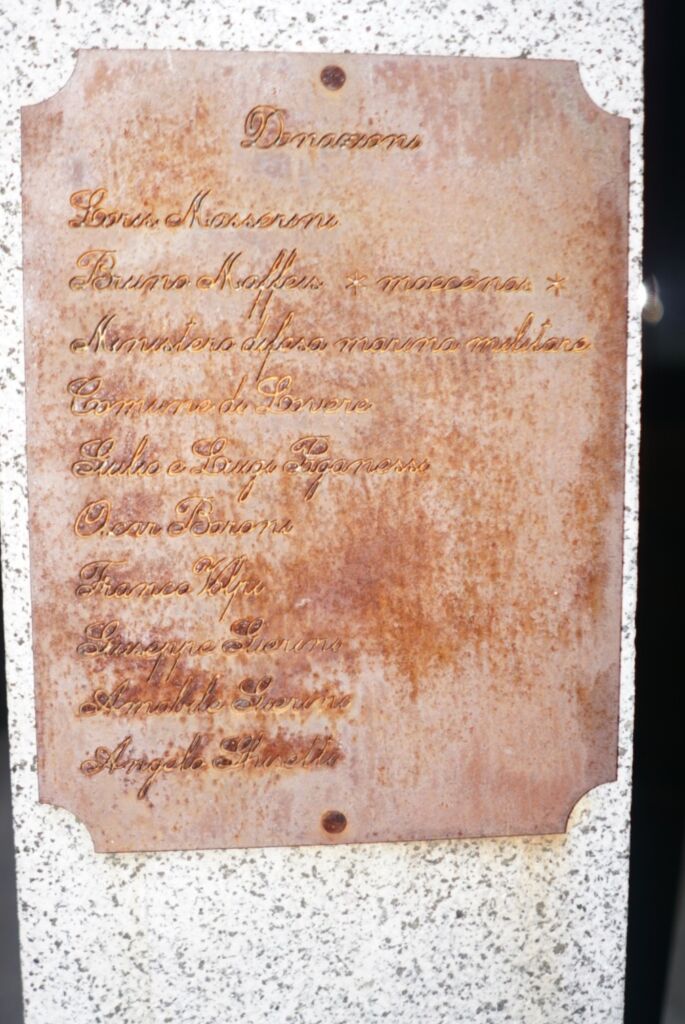 Donazioni
Loris Masserini
Bruno Maffeis * maecenas *
Ministero difesa marina militare
Comune di Lovere
Giulio e Luigi Paganessi
Oscar Baroni
Franco Volpi
Giuseppe
Amabile
Angelo